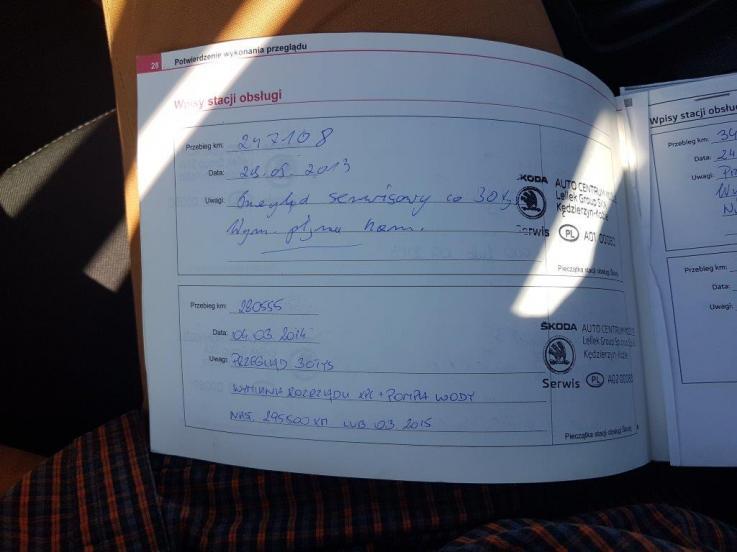 28 Potwierdzenie wykonania przeglądu
Wpisy stacji obsługi
Przebieg km: 247108
Data: 29.05.2013
Uwagi: Przegląd serwisowy co 30 tyś
Wym. płynu ham.
ŠKODA AUTO CENTRUM
Lellek Group Sp.
Kędzierzyn-Koźle
Serwis PL
Pieczątka stacji obsługi Škody
Przebieg km: 280555
Data: 04 03 2014
Uwagi: PRZEGLĄD 30TYS
WYMIANA ROZRZĄDU KPL + POMPA WODY
NAST. 295500 KM LUB 03.2015
ŠKODA AUTO CENTRUM
Lellek Group Sp.
Kędzierzyn-Koźle
Serwis PL
Pieczątka stacji obsługi Škody
Wpisy stacji obsługi
Przebieg km: 34
Data: 24
Uwagi:
Przebieg km:
Data:
Uwagi: